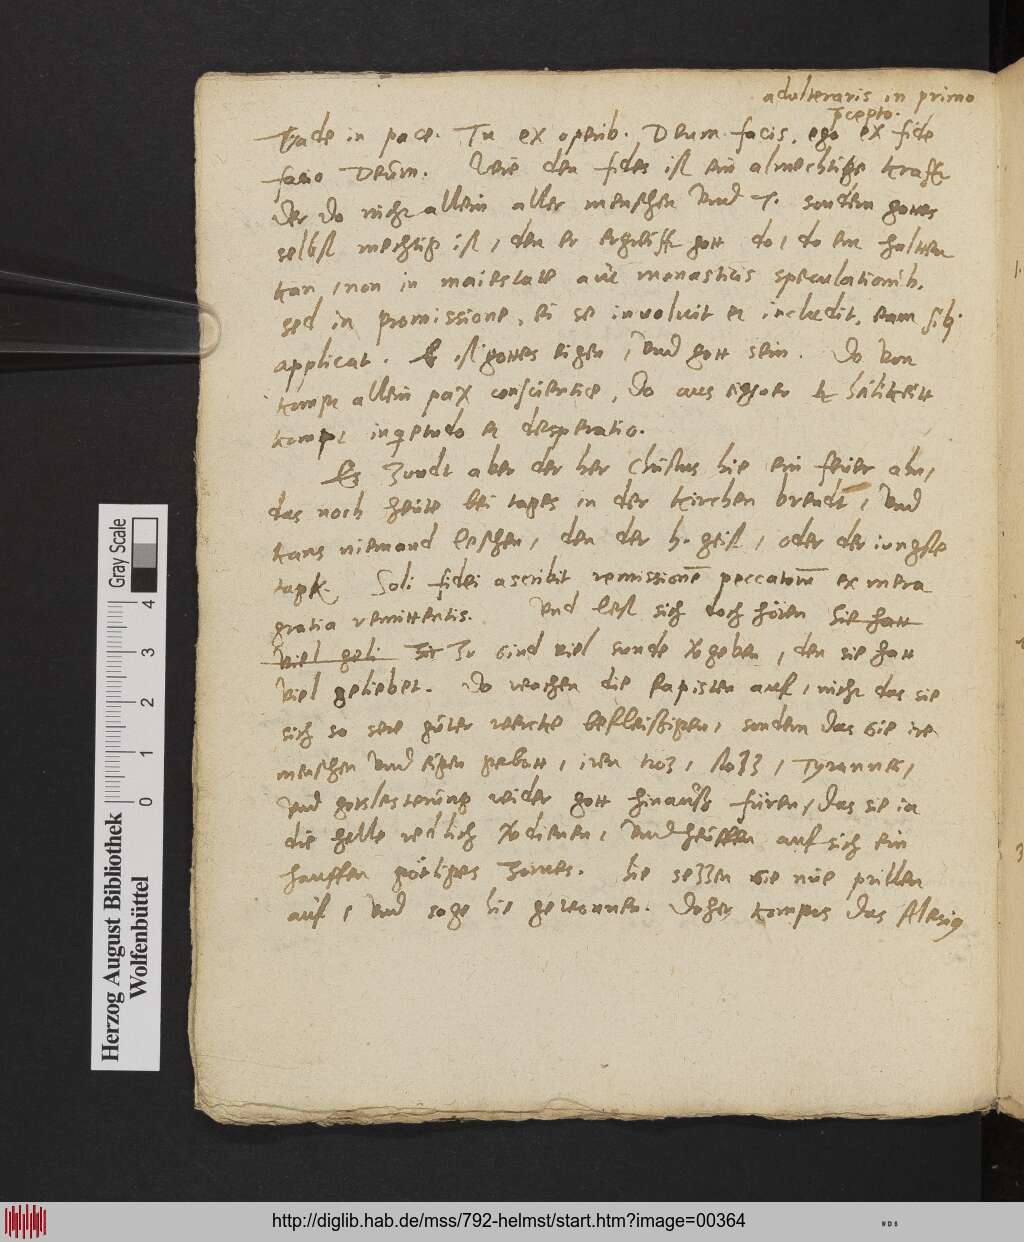 adulteraris in primo
pcepto.
Vade in pace. Tu ex operib. Deum facis, ego ex fide
facio Deum. den fides ist ein almechtige krafft
Der do nicht allein aller menschen vnd T. sondern gottes
selbst mechtig ist, den er ergreifft gott do, do ern haltten
kan, non in maiestate aut monasticis speculationib.
sed in promissione, ei se involuit et includit, eam sibi
applicat. Es ist gottes eigen, vnd gott sein. Do von
kompt allein pax conscientie, Do aus eigner heilikeitt
kompt inquetudo et desperatio.
Es Zundt aber der her Christus hie ein feuer ahn,
das noch heute bei tages in der kirchen brendt, vnd
kans niemand leschen, den der h. geist, oder der iungste
tagk. Soli fidei ascribit remissionē peccatorum ex mera
gratia remittentis. vnd lest sich doch hören sie hatt
viel geli Zu Ir sind viel sunde vgeben, den sie hatt
viel geliebet. Do wachen die Papisten auf, nicht das sie
sich so sere guter wercke befleissigen, sondern das sie ire
menschen vnd eigen gebott, iren troz, stozz, Tyrannei,
vnd gotslesterung wider gott hinauß füren, das sie in
die helle redlich vdienen, vnd heuffen auf sich ein
hauffen götliges Zornes. Hie sezzen sie nue prillen
auf, vnd sage hie gewonnen. Doher kompts das
Herzog August Bibliothek
Wolfenbüttel
Gray Scale
0 1 2 3 4
http://diglib.hab.de/mss/792-helmst/start.htm?image=00364